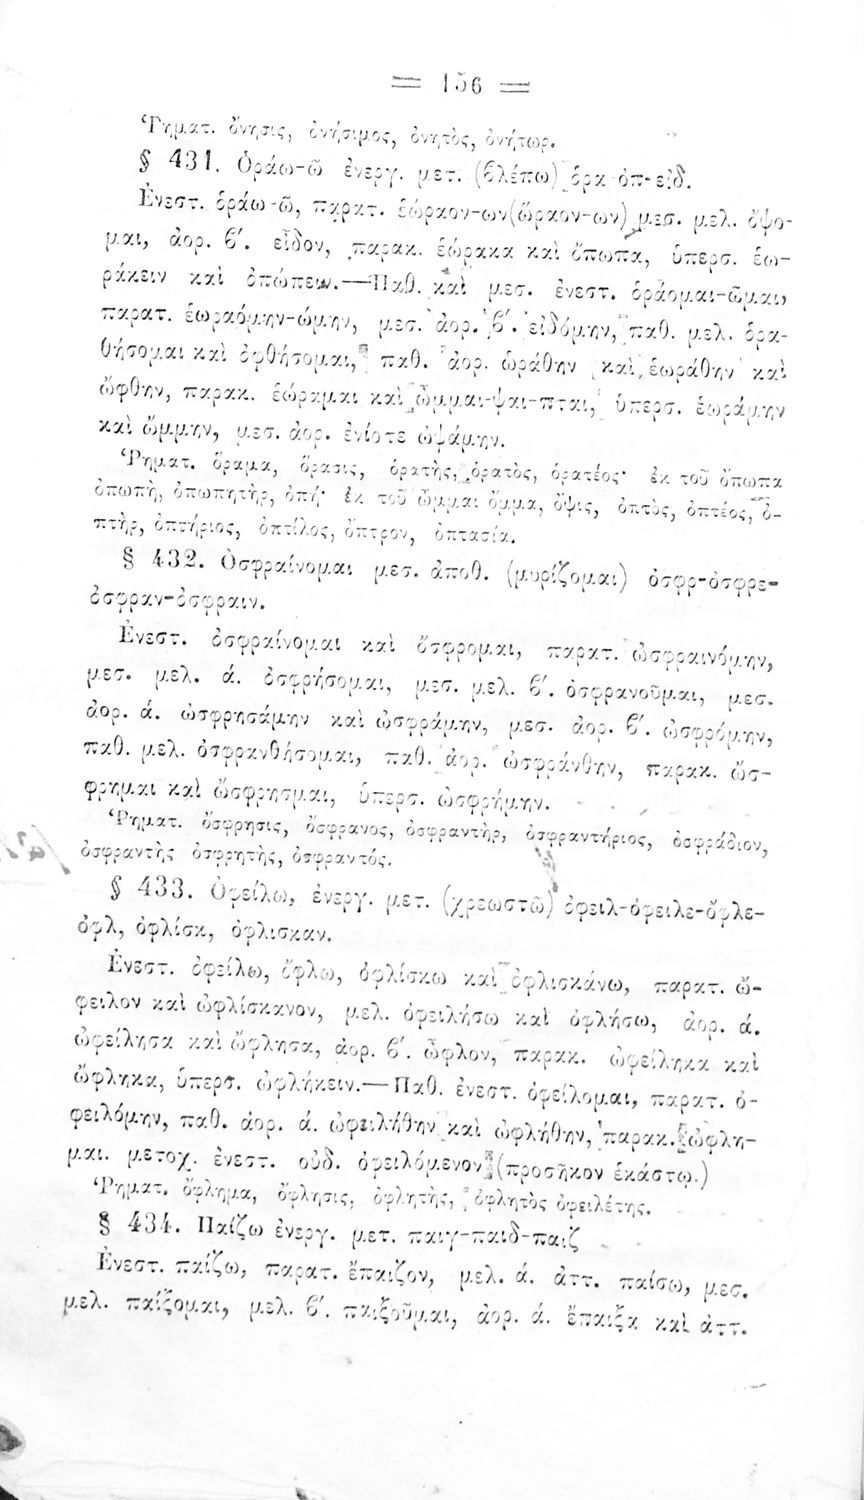 = 156 =
Ῥηματ. ὄνησις, ὀνήσιμος, ὀνητὸς, ὀνήτωρ.
§ 431. Ὁράω-ῶ ἐνεργ. μετ. (βλέπω) ὁρα-ὀπ-εἰδ.
Ἐνεστ. ὁράω-ῶ, παρατ. ἑώραον-ων(ὥραον-ων) μεσ. μελ. ὄψο-
μαι, ἀορ. β'. εἶδον, παρακ. ἑώρακα καὶ ὄπωπα, ὑπερσ. ἑω-
ράκειν καὶ ὀπώπειν.—Παθ. καὶ μεσ. ἐνεστ. ὁράομαι-ῶμαι,
παρατ. ἑωραόμην-ώμην, μεσ. ἀορ. β'. εἰδόμην, παθ. μελ. ὁρα-
θήσομαι καὶ ὀφθήσομαι, παθ. ἀορ. ὡράθην καὶ ἑωράθην καὶ
ὤφθην, παρακ. ἑώραμαι καὶ ὦμμαι-ψαι-πται, ὑπερσ. ἑωράμην
καὶ ὤμμην, μεσ. ἀορ. ἐνίοτε ὠψάμην.
Ῥηματ. ὅραμα, ὅρασις, ὁρατὴς, ὁρατὸς, ὁρατέος· ἐκ τοῦ ὄπωπα
ὀπωπὴ, ὀπωπητὴρ, ὀπή· ἐκ τοῦ ὦμμαι ὄμμα, ὄψις, ὀπτὸς, ὀπτέος, ὀ-
πτὴρ, ὀπτήριος, ὀπτίλος, ὄπτρον, ὀπτασία.
§ 432. Ὀσφραίνομαι μεσ. ἀποθ. (μυρίζομαι) ὀσφρ-ὀσφρε-
ὀσφραν-ὀσφραιν.
Ἐνεστ. ὀσφραίνομαι καὶ ὄσφρομαι, παρατ. ὠσφραινόμην,
μεσ. μελ. ά. ὀσφρήσομαι, μεσ. μελ. β'. ὀσφρανοῦμαι, μεσ.
ἀορ. ά. ὠσφρησάμην καὶ ὠσφράμην, μεσ. ἀορ. β'. ὠσφρόμην,
παθ. μελ. ὀσφρανθήσομαι, παθ. ἀορ. ὠσφράνθην, παρακ. ὤσ-
φρημαι καὶ ὤσφρησμαι, ὑπερσ. ὠσφρήμην.
Ῥηματ. ὄσφρησις, ὄσφρανος, ὀσφραντὴρ, ὀσφραντήριος, ὀσφράδιον,
ὀσφραντὴς ὀσφρητὴς, ὀσφραντός.
§ 433. Ὀφείλω, ἐνεργ. μετ. (χρεωστῶ) ὀφειλ-ὀφειλε-ὄφλε-
ὀφλ, ὀφλίσκ, ὀφλισκαν.
Ἐνεστ. ὀφείλω, ὄφλω, ὀφλίσκω καὶ ὀφλισκάνω, παρατ. ὤ-
φειλον καὶ ὠφλίσκανον, μελ. ὀφειλήσω καὶ ὀφλήσω, ἀορ. ά.
ὠφείλησα καὶ ὤφλησα, ἀορ. β'. ὦφλον, παρακ. ὠφείληκα καὶ
ὤφληκα, ὑπερσ. ὠφλήκειν.—Παθ. ἐνεστ. ὀφείλομαι, παρατ. ὀ-
φειλόμην, παθ. ἀορ. ά. ὠφειλήθην καὶ ὠφλήθην, παρακ. ὤφλη-
μαι. μετοχ. ἐνεστ. οὐδ. ὀφειλόμενον (προσῆκον ἑκάστῳ.)
Ῥηματ. ὄφλημα, ὄφλησις, ὀφλητὴς, ὀφλητὸς ὀφειλέτης.
§ 434. Παίζω ἐνεργ. μετ. παιγ-παιδ-παιζ
Ἐνεστ. παίζω, παρατ. ἔπαιζον, μελ. ά. ἀττ. παίσω, μεσ.
μελ. παίξομαι, μελ. β'. παιξοῦμαι, ἀορ. ά. ἔπαιξα καὶ ἀττ.